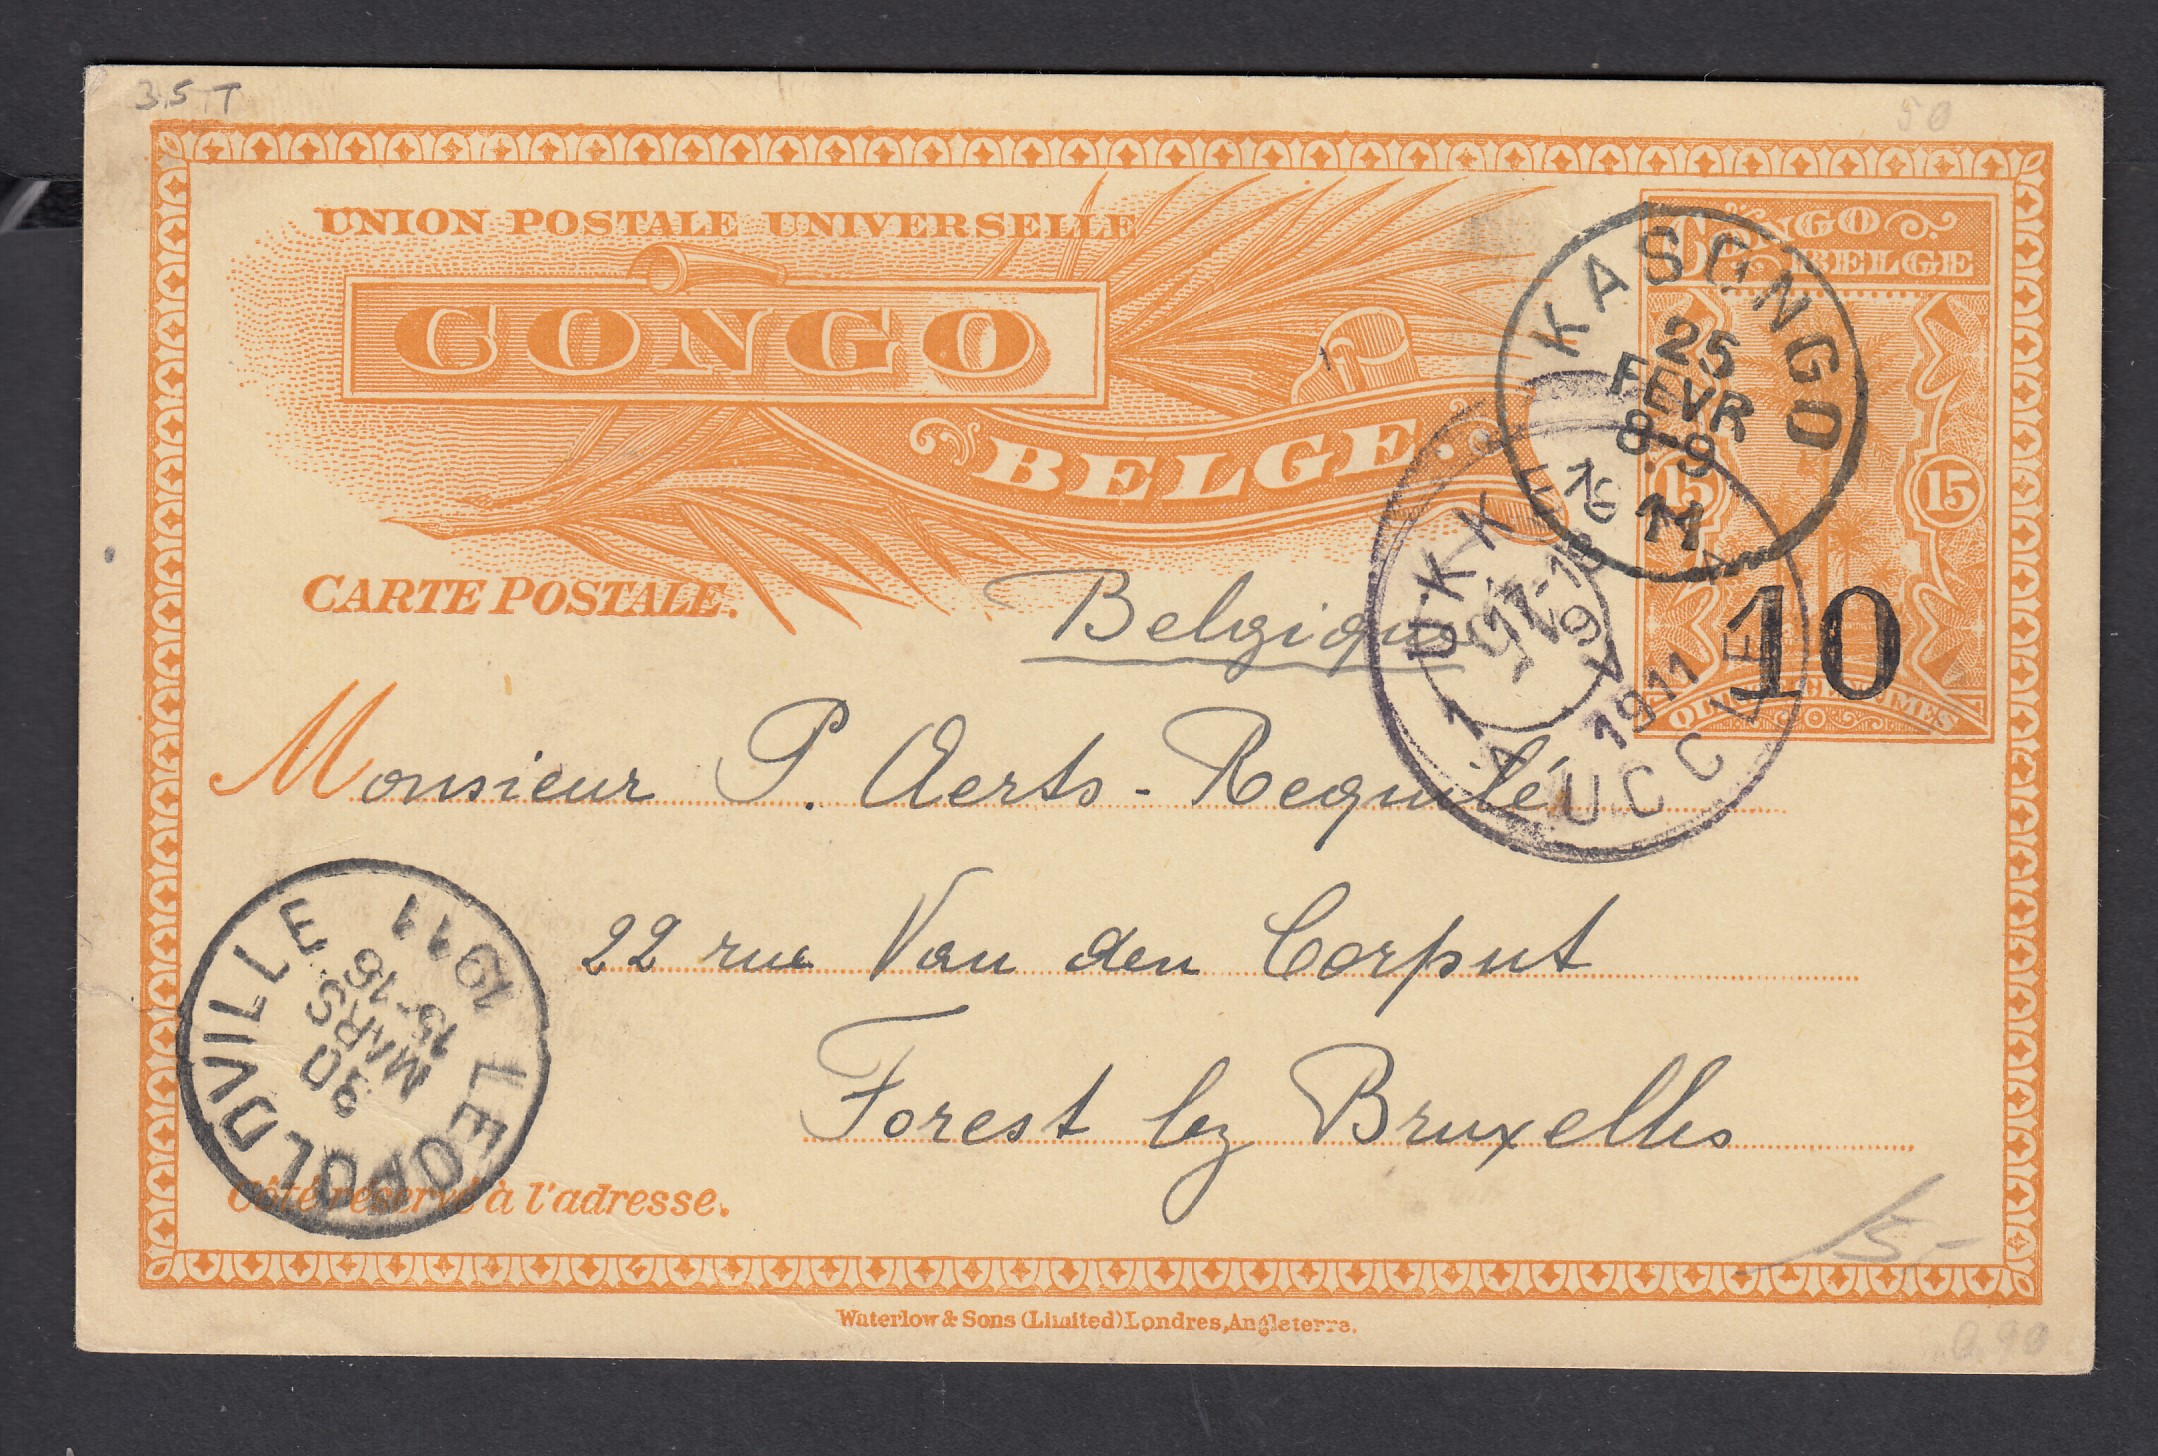 35 T
50
UNION POSTALE UNIVERSELLE
CONGO
BELGE.
CONGO
BELGE
15 15
KASONGO
25
FEVR
8-9
1911
10
CARTE POSTALE.
Belgique
UKKEL
17-18
1911
UCCLE
Monsieur P. Aerts-Requilé
22 rue Van den Corput
Forest lez Bruxelles
LEOPOLDVILLE
30
MARS
15-16
1911
Côté réservé à l'adresse.
15.-
Waterlow & Sons (Limited) Londres, Angleterre.
0.90